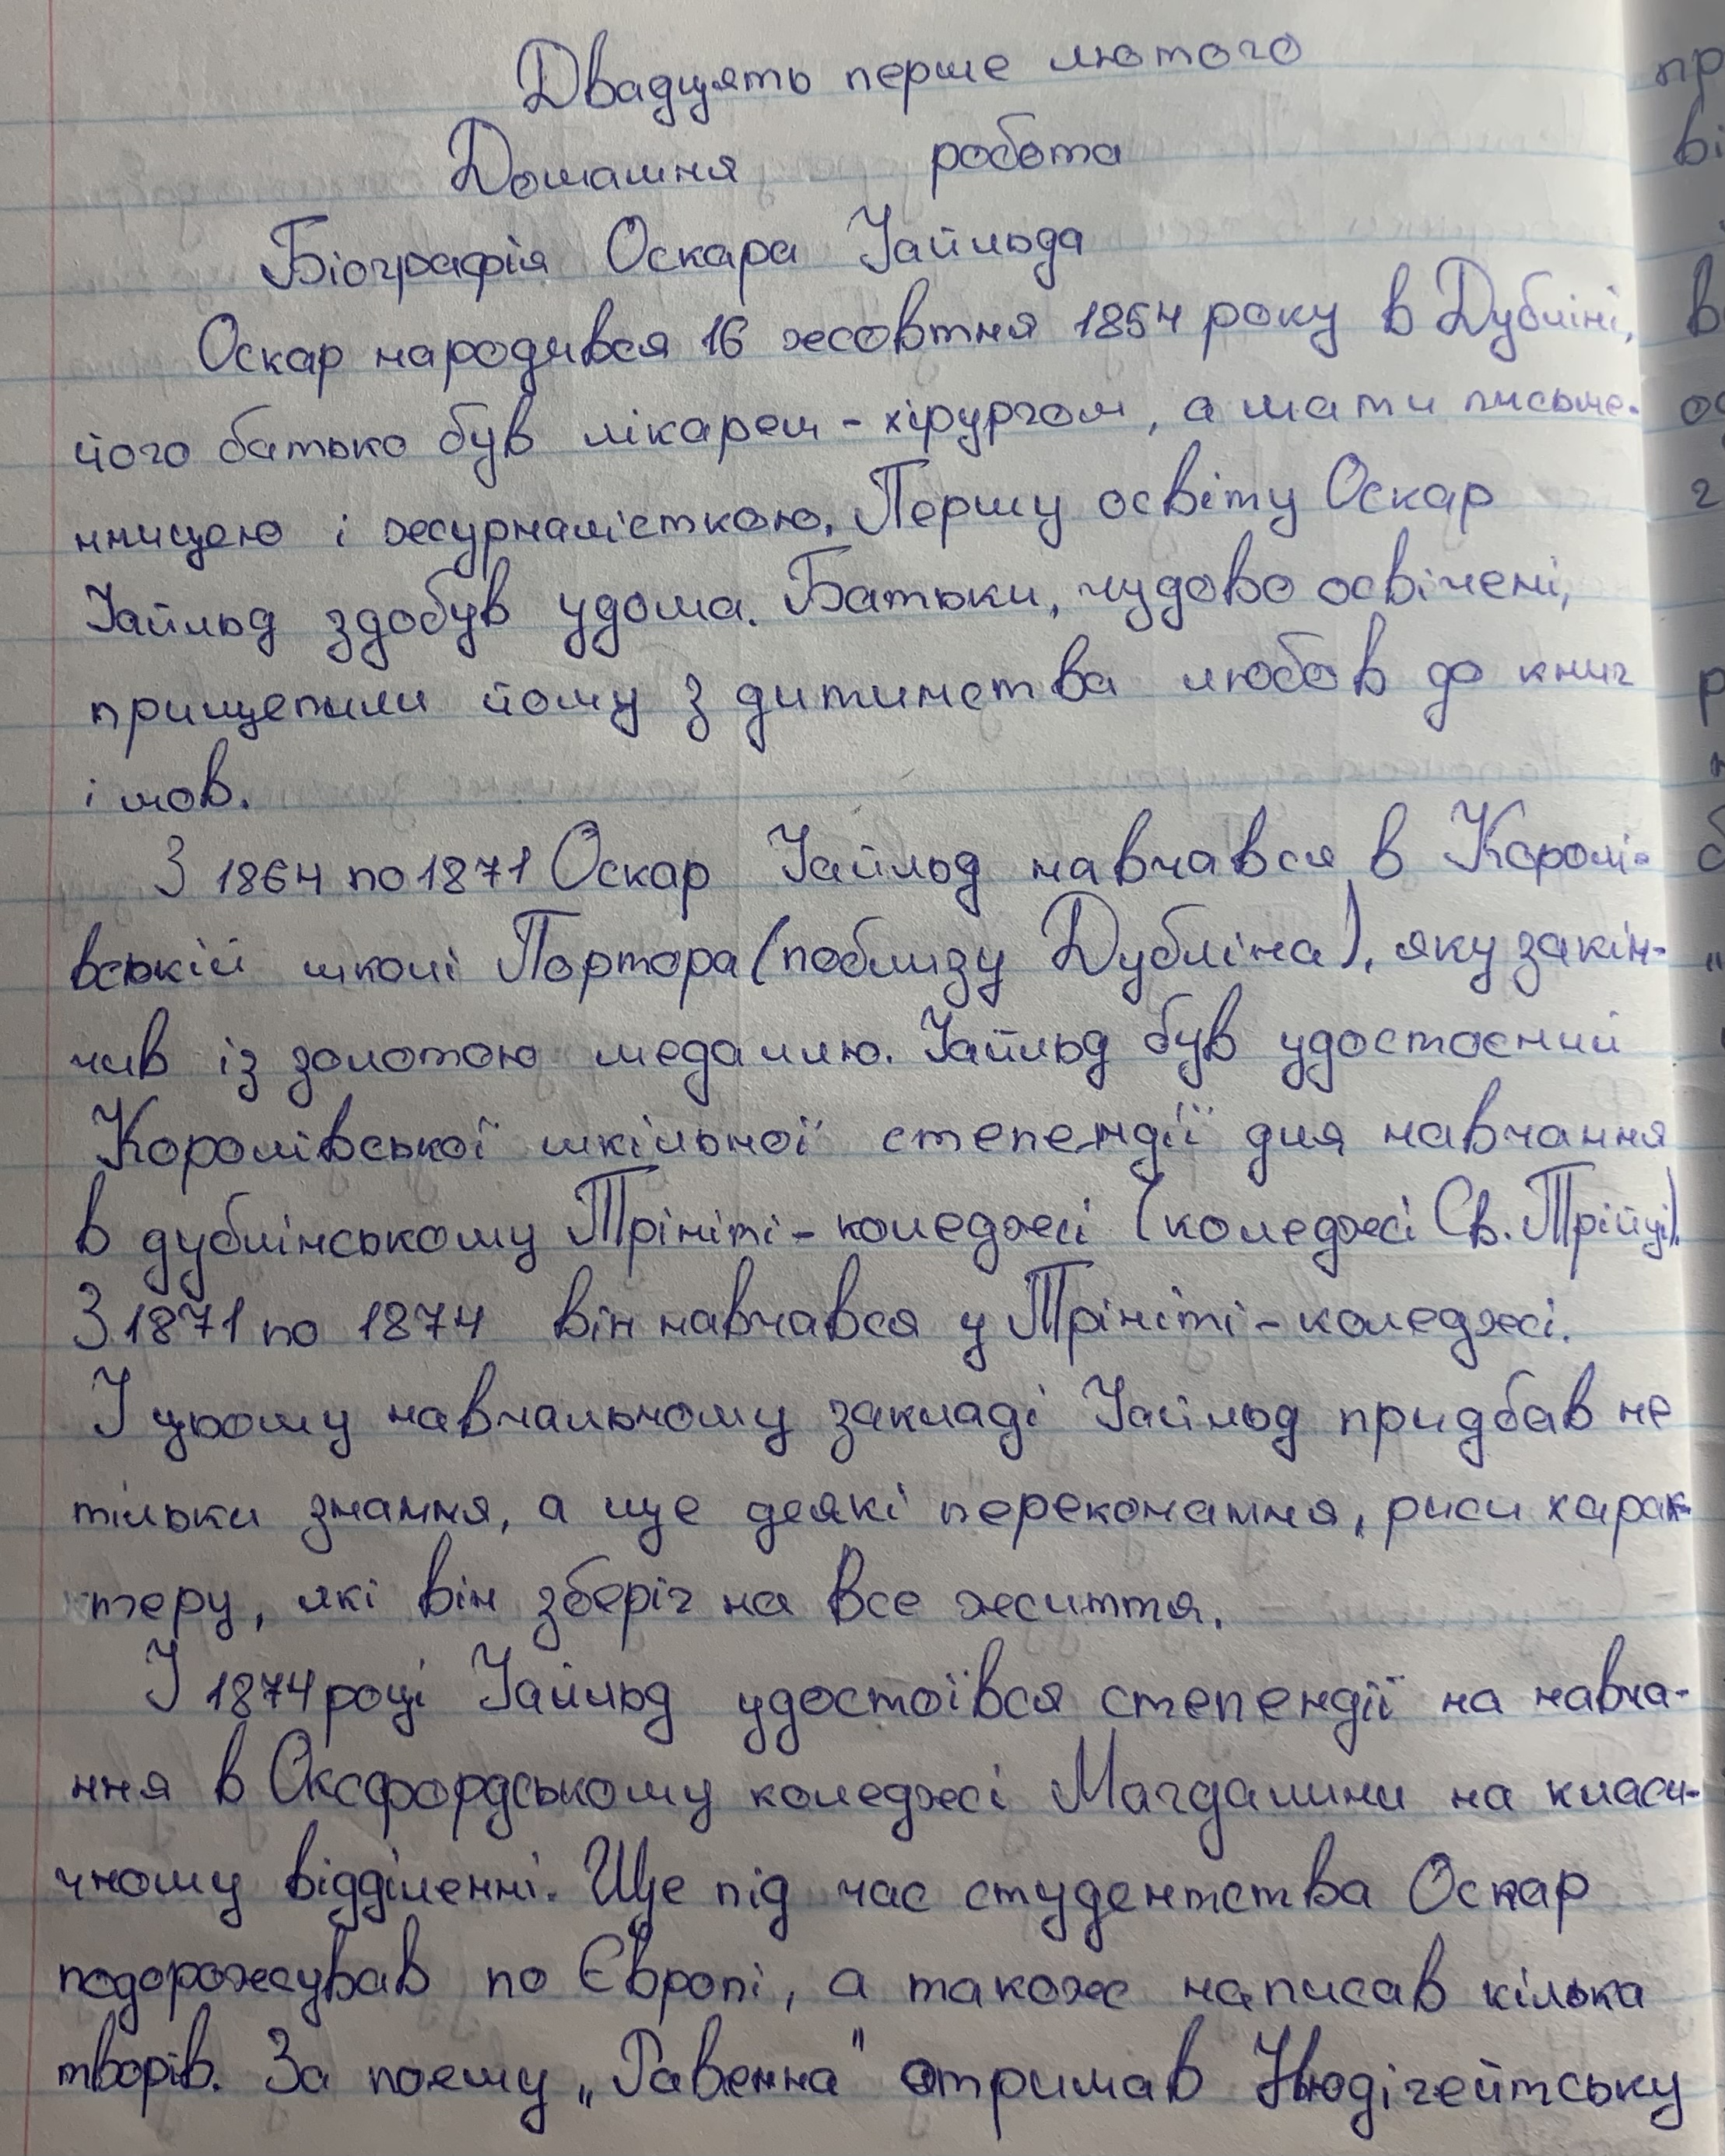 Двадцять перше лютого
Домашня робота
Біографія Оскара Уайльда
Оскар народився 16 жовтня 1854 року в Дубліні,
його батько був лікарем-хірургом, а мати письме-
нницею і журналісткою. Першу освіту Оскар
Уайльд здобув удома. Батьки, чудово освічені,
прищепили йому з дитинства любов до книг
і мов.
З 1864 по 1871 Оскар Уайльд навчався в Королі-
вській школі Портора (поблизу Дубліна), яку закін-
чив із золотою медаллю. Уайльд був удостоєний
Королівської шкільної степендії для навчання
в дублінському Трініті-коледжі (коледжі Св. Трійці).
З 1871 по 1874 він навчався у Трініті-коледжі.
У цьому навчальному закладі Уайльд придбав не
тільки знання, а ще деякі переконання, риси харак-
теру, які він зберіг на все життя.
У 1874 році Уайльд удостоївся степендії на навча-
ння в Оксфордському коледжі Магдалини на класи-
чному відділенні. Ще під час студентства Оскар
подорожував по Європі, а також написав кілька
творів. За поему „Равенна" отримав Ньюдігейтську